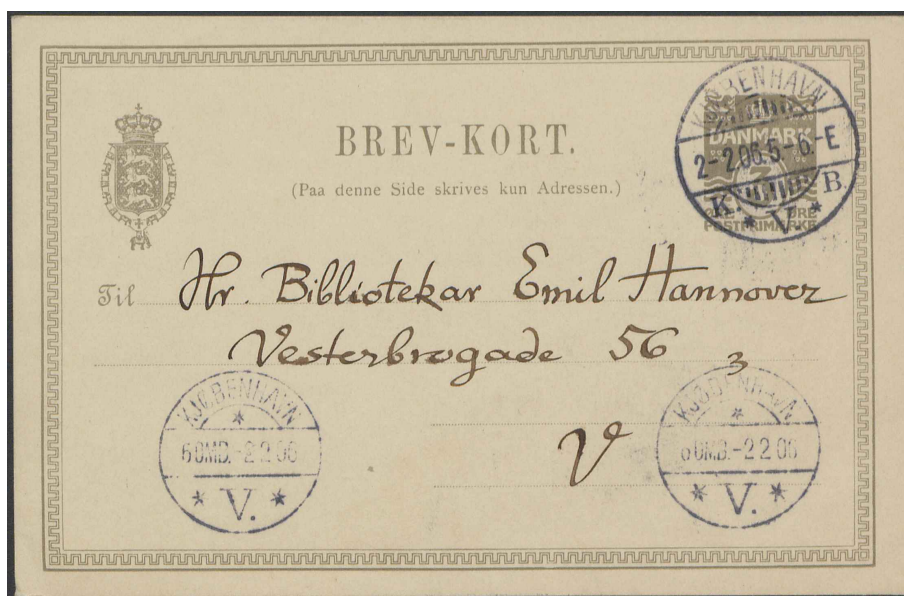 BREV-KORT.
(Paa denne Side skrives kun Adressen.)
KJØBENHAVN
2-2.06.5-6.-E
K. B.
* V. *
DANMARK
3
ØRE ØRE
POSTFRIMÆRKE
Til Hr. Bibliotekar Emil Hannover
Vesterbrogade 56 3
V
KJØBENHAVN
*
6OMB.-2 2 06
* V. *
KJØBENHAVN
*
6OMB.-2 2 06
* V. *